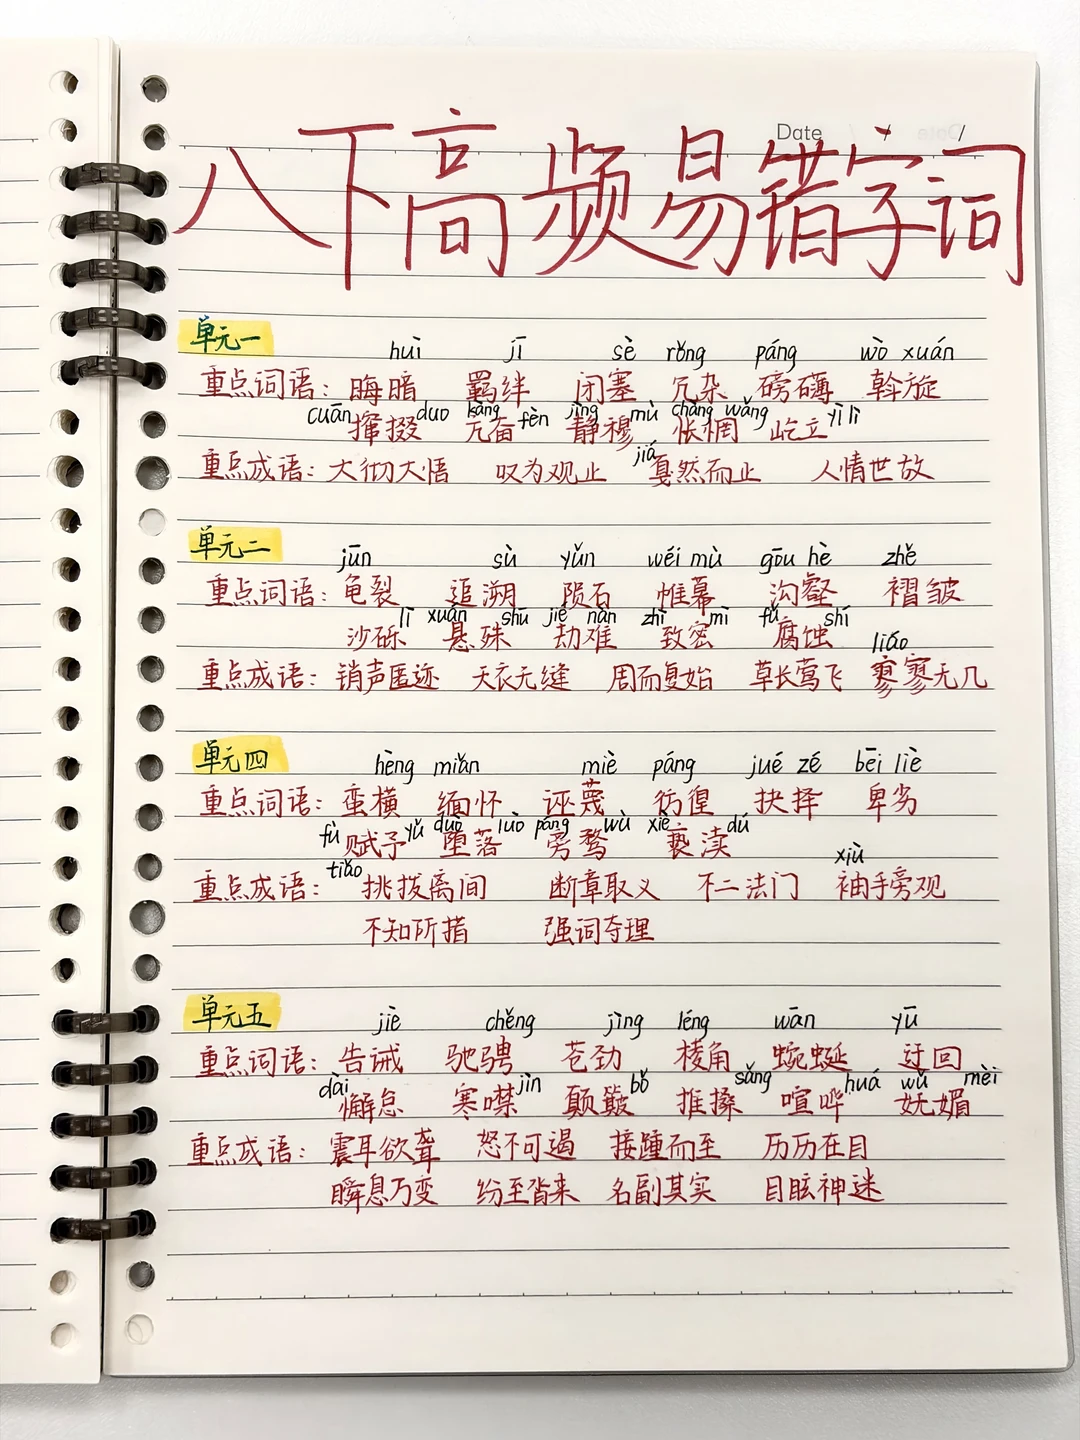 Date / /
八下高频易错字词
单元一
huì jī sè rǒng páng wò xuán
重点词语：晦暗 羁绊 闭塞 冗杂 磅礴 斡旋
cuān duo kàng fèn jìng mù chàng wǎng yì lì
撺掇 亢奋 静穆 怅惘 屹立
jiá
重点成语：大彻大悟 叹为观止 戛然而止 人情世故
单元二
jūn sù yǔn wéi mù gōu hè zhě
重点词语：龟裂 追溯 陨石 帷幕 沟壑 褶皱
lì xuán shū jié nàn zhì mì fǔ shí
沙砾 悬殊 劫难 致密 腐蚀
liáo
重点成语：销声匿迹 天衣无缝 周而复始 草长莺飞 寥寥无几
单元四
hèng miǎn miè páng jué zé bēi liè
重点词语：蛮横 缅怀 诬蔑 彷徨 抉择 卑劣
fù yǔ duò luò páng wù xiè dú
赋予 堕落 旁骛 亵渎
tiǎo xiù
重点成语：挑拨离间 断章取义 不二法门 袖手旁观
不知所措 强词夺理
单元五
jiè chěng jìng léng wān yū
重点词语：告诫 驰骋 苍劲 棱角 蜿蜒 迂回
dài jìn bǒ sǎng huá wǔ mèi
懈怠 寒噤 颠簸 推搡 喧哗 妩媚
重点成语：震耳欲聋 怒不可遏 接踵而至 历历在目
瞬息万变 纷至沓来 名副其实 目眩神迷